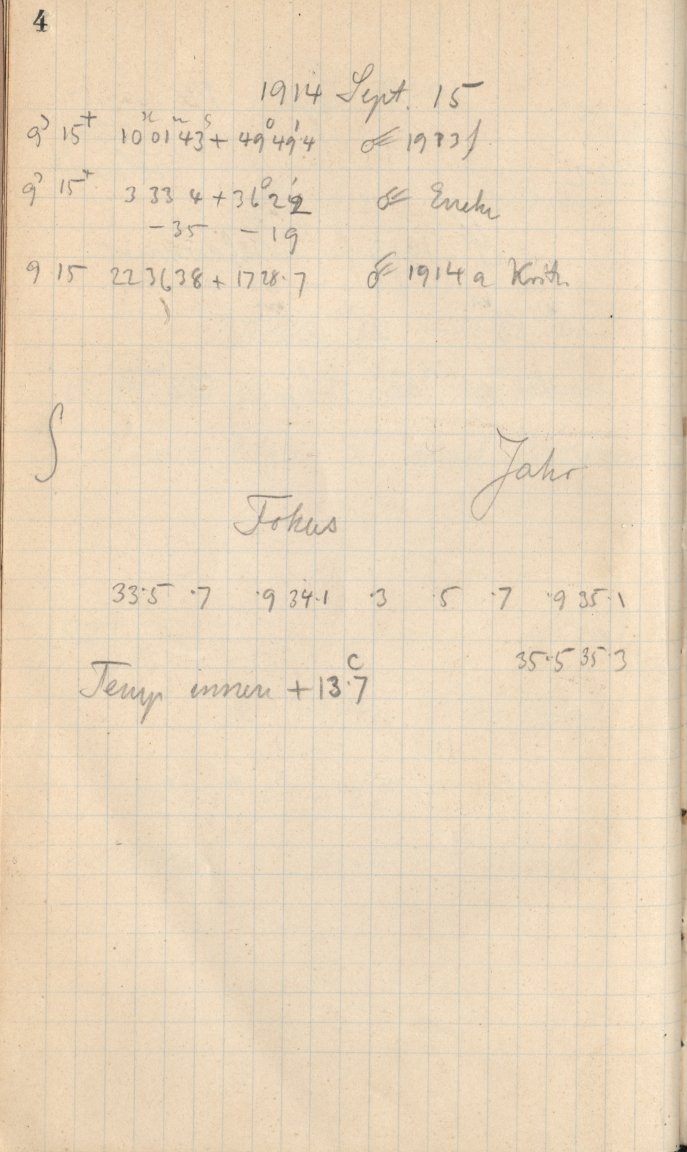 4
1914 Sept. 15
9 15+ 10h 01m 43s + 49° 49'.4 ☄ 1913f
9 15+ 3 33 4 + 36° 2'
- 35 - 19
9 15 22 36 38 + 17 28.7 ☄ 1914 a Kritz.
Jahr
Fokus
33.5 .7 .9 34.1 .3 5 .7 .9 35.1
35.5 35.3
Temp innen + 13.7 C